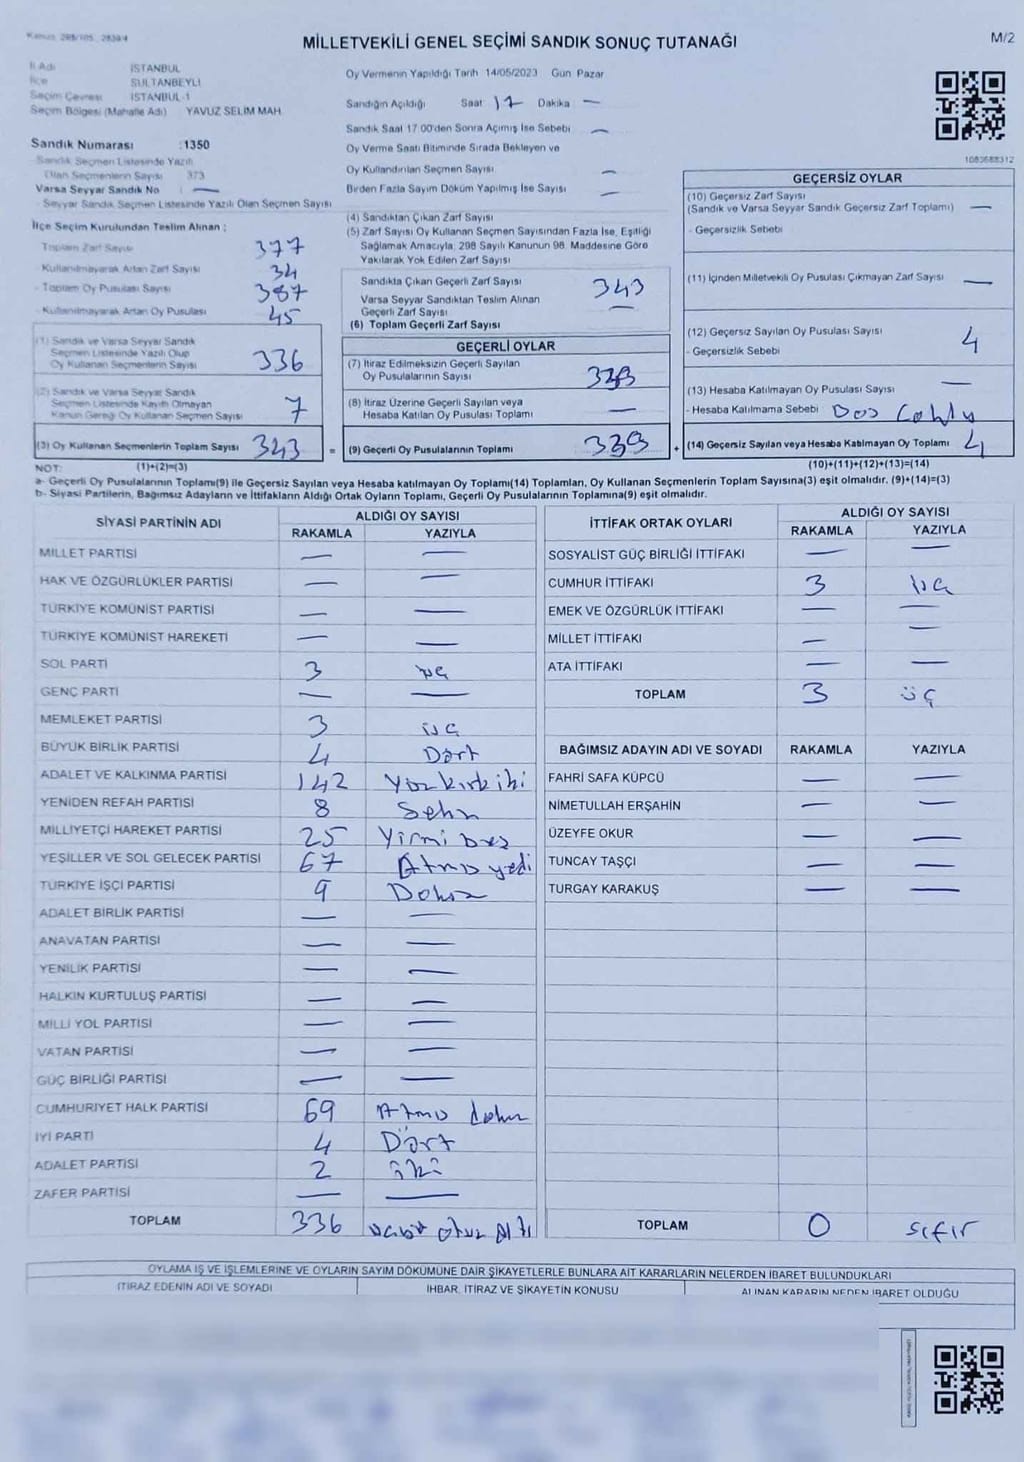 Kanun: 298/105, 2839/4
MİLLETVEKİLİ GENEL SEÇİMİ SANDIK SONUÇ TUTANAĞI
M/2
İl Adı İSTANBUL
İlçe SULTANBEYLİ
Seçim Çevresi İSTANBUL-1
Seçim Bölgesi (Mahalle Adı) YAVUZ SELİM MAH.
Oy Vermenin Yapıldığı Tarih 14/05/2023 Gün Pazar
Sandığın Açıldığı Saat 17 Dakika —
Sandık Saat 17:00'den Sonra Açılmış İse Sebebi —
Oy Verme Saati Bitiminde Sırada Bekleyen ve
Oy Kullandırılan Seçmen Sayısı —
Birden Fazla Sayım Döküm Yapılmış İse Sayısı —
1083688312
Sandık Numarası :1350
- Sandık Seçmen Listesinde Yazılı
Olan Seçmenlerin Sayısı 373
Varsa Seyyar Sandık No : —
- Seyyar Sandık Seçmen Listesinde Yazılı Olan Seçmen Sayısı
İlçe Seçim Kurulundan Teslim Alınan :
- Toplam Zarf Sayısı 377
- Kullanılmayarak Artan Zarf Sayısı 34
- Toplam Oy Pusulası Sayısı 387
- Kullanılmayarak Artan Oy Pusulası 45
(1) Sandık ve Varsa Seyyar Sandık
Seçmen Listesinde Yazılı Olup
Oy Kullanan Seçmenlerin Sayısı 336
(2) Sandık ve Varsa Seyyar Sandık
Seçmen Listesinde Kayıtlı Olmayan
Kanun Gereği Oy Kullanan Seçmen Sayısı 7
(3) Oy Kullanan Seçmenlerin Toplam Sayısı 343
(1)+(2)=(3)
(4) Sandıktan Çıkan Zarf Sayısı
(5) Zarf Sayısı Oy Kullanan Seçmen Sayısından Fazla İse, Eşitliği
Sağlamak Amacıyla, 298 Sayılı Kanunun 98. Maddesine Göre
Yakılarak Yok Edilen Zarf Sayısı
Sandıkta Çıkan Geçerli Zarf Sayısı 343
Varsa Seyyar Sandıktan Teslim Alınan
Geçerli Zarf Sayısı —
(6) Toplam Geçerli Zarf Sayısı
GEÇERLİ OYLAR
(7) İtiraz Edilmeksizin Geçerli Sayılan
Oy Pusulalarının Sayısı 339
(8) İtiraz Üzerine Geçerli Sayılan veya
Hesaba Katılan Oy Pusulası Toplamı —
= (9) Geçerli Oy Pusulalarının Toplamı 339 +
GEÇERSİZ OYLAR
(10) Geçersiz Zarf Sayısı
(Sandık ve Varsa Seyyar Sandık Geçersiz Zarf Toplamı) —
- Geçersizlik Sebebi
(11) İçinden Milletvekili Oy Pusulası Çıkmayan Zarf Sayısı —
(12) Geçersiz Sayılan Oy Pusulası Sayısı 4
- Geçersizlik Sebebi
(13) Hesaba Katılmayan Oy Pusulası Sayısı —
- Hesaba Katılmama Sebebi
(14) Geçersiz Sayılan veya Hesaba Katılmayan Oy Toplamı 4
(10)+(11)+(12)+(13)=(14)
NOT:
a- Geçerli Oy Pusulalarının Toplamı(9) ile Geçersiz Sayılan veya Hesaba katılmayan Oy Toplamı(14) Toplamları, Oy Kullanan Seçmenlerin Toplam Sayısına(3) eşit olmalıdır. (9)+(14)=(3)
b- Siyasi Partilerin, Bağımsız Adayların ve İttifakların Aldığı Ortak Oyların Toplamı, Geçerli Oy Pusulalarının Toplamına(9) eşit olmalıdır.
SİYASİ PARTİNİN ADI ALDIĞI OY SAYISI
RAKAMLA YAZIYLA
MİLLET PARTİSİ — —
HAK VE ÖZGÜRLÜKLER PARTİSİ — —
TÜRKİYE KOMÜNİST PARTİSİ — —
TÜRKİYE KOMÜNİST HAREKETİ — —
SOL PARTİ 3 üç
GENÇ PARTİ — —
MEMLEKET PARTİSİ 3 üç
BÜYÜK BİRLİK PARTİSİ 4 Dört
ADALET VE KALKINMA PARTİSİ 142 Yüzkırkiki
YENİDEN REFAH PARTİSİ 8 Sekiz
MİLLİYETÇİ HAREKET PARTİSİ 25 Yirmi beş
YEŞİLLER VE SOL GELECEK PARTİSİ 67 Atmış yedi
TÜRKİYE İŞÇİ PARTİSİ 9 Dokuz
ADALET BİRLİK PARTİSİ — —
ANAVATAN PARTİSİ — —
YENİLİK PARTİSİ — —
HALKIN KURTULUŞ PARTİSİ — —
MİLLİ YOL PARTİSİ — —
VATAN PARTİSİ — —
GÜÇ BİRLİĞİ PARTİSİ — —
CUMHURİYET HALK PARTİSİ 69 Atmış dokuz
İYİ PARTİ 4 Dört
ADALET PARTİSİ 2 iki
ZAFER PARTİSİ — —
TOPLAM 336 üçyüz otuz Altı
İTTİFAK ORTAK OYLARI ALDIĞI OY SAYISI
RAKAMLA YAZIYLA
SOSYALİST GÜÇ BİRLİĞİ İTTİFAKI — —
CUMHUR İTTİFAKI 3 üç
EMEK VE ÖZGÜRLÜK İTTİFAKI — —
MİLLET İTTİFAKI — —
ATA İTTİFAKI — —
TOPLAM 3 üç
BAĞIMSIZ ADAYIN ADI VE SOYADI RAKAMLA YAZIYLA
FAHRİ SAFA KÜPCÜ — —
NİMETULLAH ERŞAHİN — —
ÜZEYFE OKUR — —
TUNCAY TAŞÇI — —
TURGAY KARAKUŞ — —
TOPLAM 0 sıfır
OYLAMA İŞ VE İŞLEMLERİNE VE OYLARIN SAYIM DÖKÜMÜNE DAİR ŞİKAYETLERLE BUNLARA AİT KARARLARIN NELERDEN İBARET BULUNDUKLARI
İTİRAZ EDENİN ADI VE SOYADI İHBAR, İTİRAZ VE ŞİKAYETİN KONUSU ALINAN KARARIN NEDEN İBARET OLDUĞU